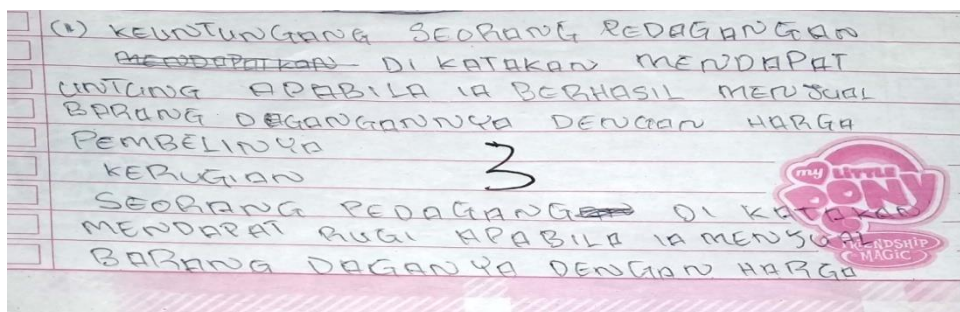 (1) KEUNTUNGANG SEORANG PEDAGANGAN
MENDAPATKAN DI KATAKAN MENDAPAT
UNTUNG APABILA IA BERHASIL MENJUAL
BARANG DAGANGANNYA DENGAN HARGA
PEMBELINYA
3
KERUGIAN
SEORANG PEDAGANG DI KATAKAN
MENDAPAT RUGI APABILA IA MENJUAL
BARANG DAGANYA DENGAN HARGA
my LITTLE
PONY
FRIENDSHIP
MAGIC